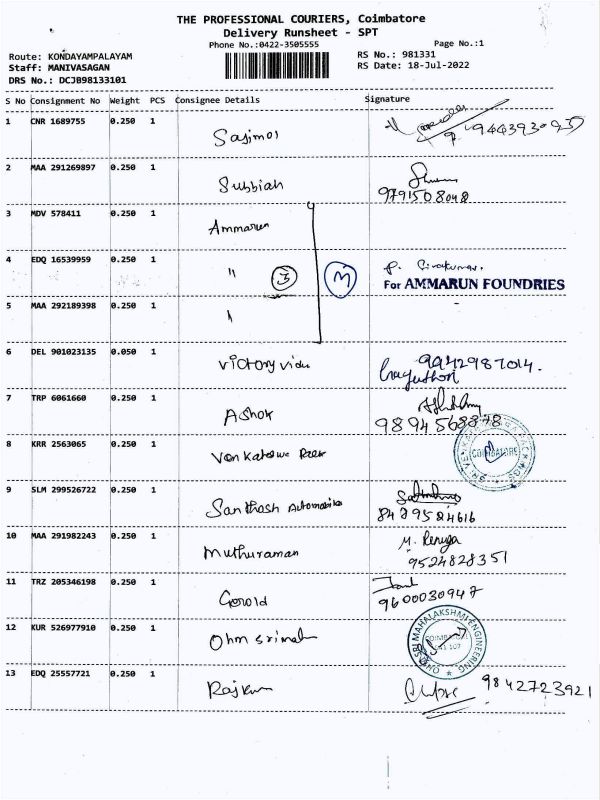 THE PROFESSIONAL COURIERS, Coimbatore
Delivery Runsheet - SPT
Phone No.:0422-3505555 Page No.:1
Route: KONDAYAMPALAYAM RS No.: 981331
Staff: MANIVASAGAN RS Date: 18-Jul-2022
DRS No.: DCJB98133101
S No Consignment No Weight PCS Consignee Details Signature
1 CNR 1689755 0.250 1 Sajimol
2 MAA 291269897 0.250 1 Subbiah 9791508048
3 MDV 578411 0.250 1 Ammarun
4 EDQ 16539959 0.250 1 " 3 M P. Sivakumar.
For AMMARUN FOUNDRIES
5 MAA 292189398 0.250 1 "
6 DEL 901023135 0.050 1 Victory vidu 9942987014.
7 TRP 6061660 0.250 1 Ashok 9894568878
8 KRR 2563065 0.250 1 COIMBATORE
9 SLM 299526722 0.250 1 Santhosh Automobiles 8489524616
10 MAA 291982243 0.250 1 Muthuraman M. Renuga
9524828351
11 TRZ 205346198 0.250 1 Gerold 9600030947
12 KUR 526977910 0.250 1 Ohm srimah OHM SRI MAHALAKSHMI ENGINEERING COIMBATORE 641 107
13 EDQ 25557721 0.250 1 Rajkum 9842723921